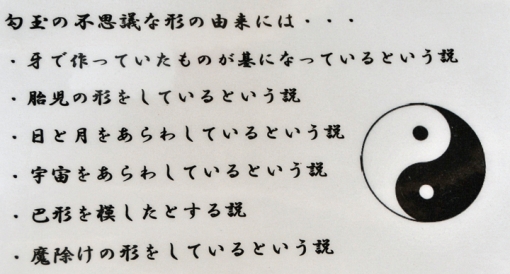 勾玉の不思議な形の由来には・・・
・牙で作っていたものが基になっているという説
・胎児の形をしているという説
・日と月をあらわしているという説
・宇宙をあらわしているという説
・巴形を模したとする説
・魔除けの形をしているという説